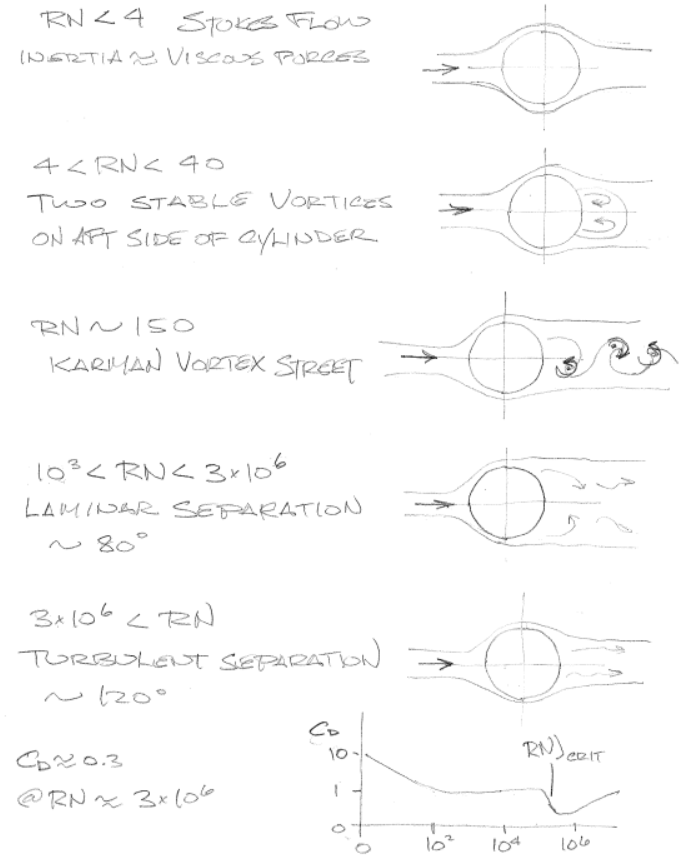 RN < 4 STOKES FLOW
INERTIA ≈ VISCOUS FORCES
4 < RN < 40
TWO STABLE VORTICES
ON AFT SIDE OF CYLINDER
RN ~ 150
KARMAN VORTEX STREET
10³ < RN < 3×10⁶
LAMINAR SEPARATION
~ 80°
3×10⁶ < RN
TURBULENT SEPARATION
~ 120°
C_D ≈ 0.3
@ RN ≈ 3×10⁶
C_D
10
1
0
RN)CRIT
0 10² 10⁴ 10⁶